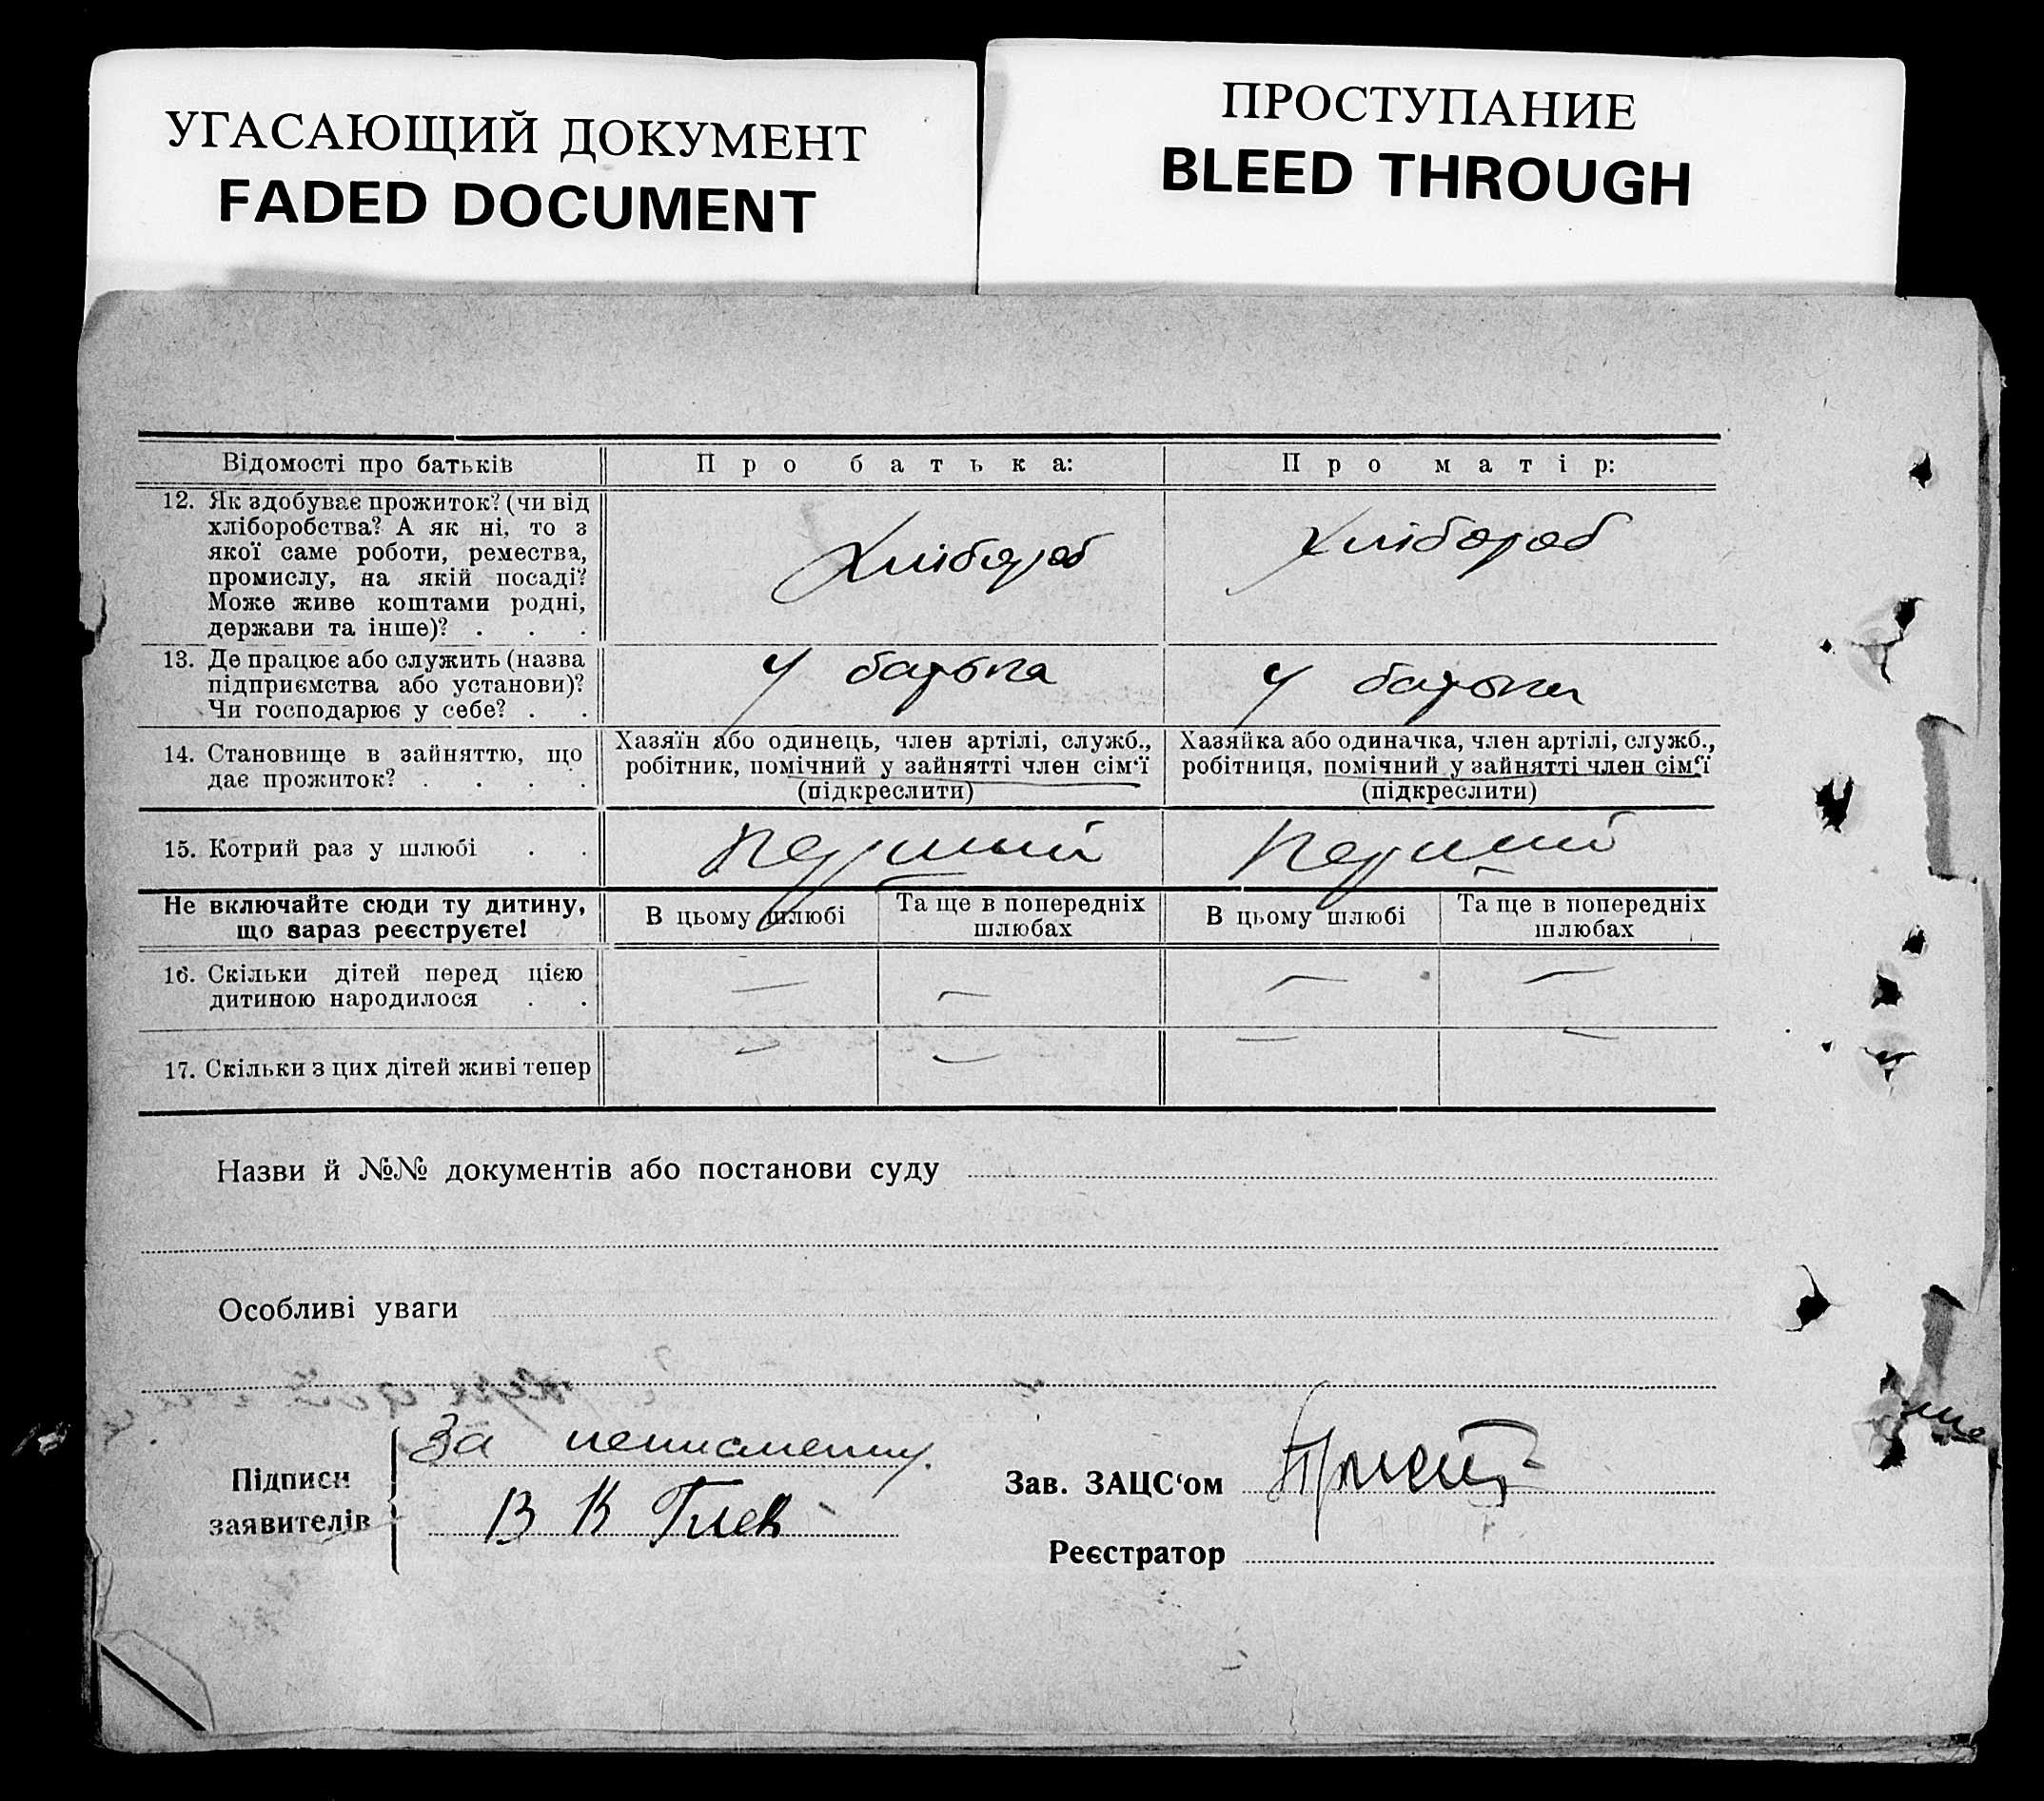 УГАСАЮЩИЙ ДОКУМЕНТ
FADED DOCUMENT
ПРОСТУПАНИЕ
BLEED THROUGH
Відомості про батьків Про батька: Про матір:
12. Як здобуває прожиток? (чи від
хліборобства? А як ні, то з
якої саме роботи, ремества,
промислу, на якій посаді?
Може живе коштами родні,
держави та інше)? . . .
Хлібороб
Хлібороб
13. Де працює або служить (назва
підприємства або установи)?
Чи господарює у себе? . .
У батька
У батька
14. Становище в зайняттю, що
дає прожиток? . . . .
Хазяїн або одинець, член артілі, служб.,
робітник, помічний у зайнятті член сім‘ї
(підкреслити)
Хазяйка або одиначка, член артілі, служб.,
робітниця, помічний у зайнятті член сім‘ї
(підкреслити)
15. Котрий раз у шлюбі . .
Перший
Перший
Не включайте сюди ту дитину,
що зараз реєструєте!
В цьому шлюбі
Та ще в попередніх
шлюбах
В цьому шлюбі
Та ще в попередніх
шлюбах
16. Скільки дітей перед цією
дитиною народилося . .
— — — —
17. Скільки з цих дітей живі тепер
— — — —
Назви й №№ документів або постанови суду
Особливі уваги
Підписи
заявителів
За неписменну.
В К Глек
Зав. ЗАЦС‘ом
Реєстратор